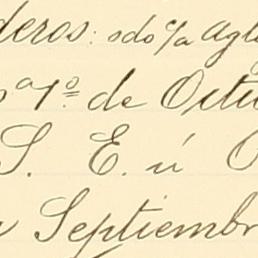 deros: odo c/a Agt
1º de Octu
S. E. ú O
Septiembr